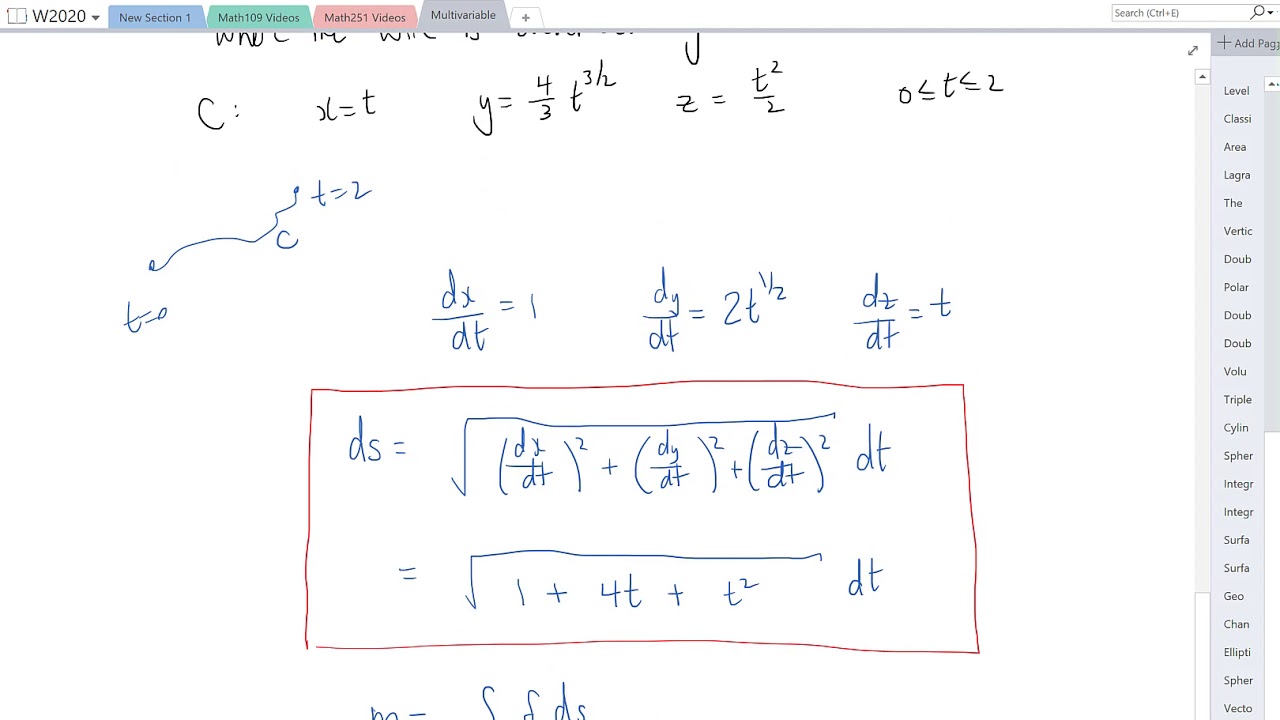 W2020 New Section 1 Math109 Videos Math251 Videos Multivariable + Search (Ctrl+E)
+ Add Pag
where the wire is
C: x=t y=4/3 t^{3/2} z=t²/2 0≤t≤2
t=2
C
t=0
dx/dt=1 dy/dt=2t^{1/2} dz/dt=t
ds= √((dx/dt)²+(dy/dt)²+(dz/dt)²) dt
= √(1+4t+t²) dt
m= ∫ δ ds
Level
Classi
Area
Lagra
The
Vertic
Doub
Polar
Doub
Doub
Volu
Triple
Cylin
Spher
Integr
Integr
Surfa
Surfa
Geo
Chan
Ellipti
Spher
Vecto